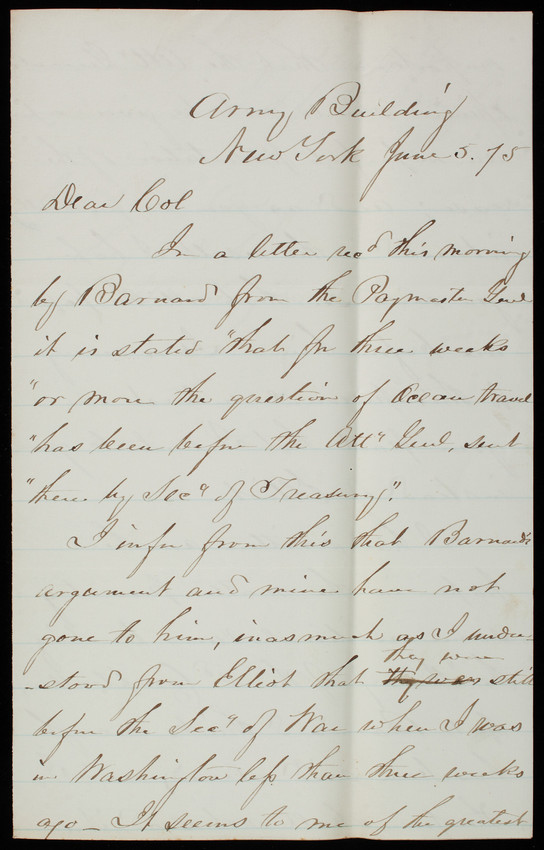 Army Building
New York June 5. 75
Dear Col
In a letter recd this morning
by Barnard from the Paymaster Genl
it is stated "that for three weeks
"or more the question of Ocean travel
"has been before the Atty Genl, sent
"there by Secy of Treasury".
I infer from this that Barnard's
argument and mine have not
gone to him, inasmuch as I under-
they were
-stood from Elliot that they were still
before the Secy of War when I was
in Washington less than three weeks
ago - It seems to me of the greatest